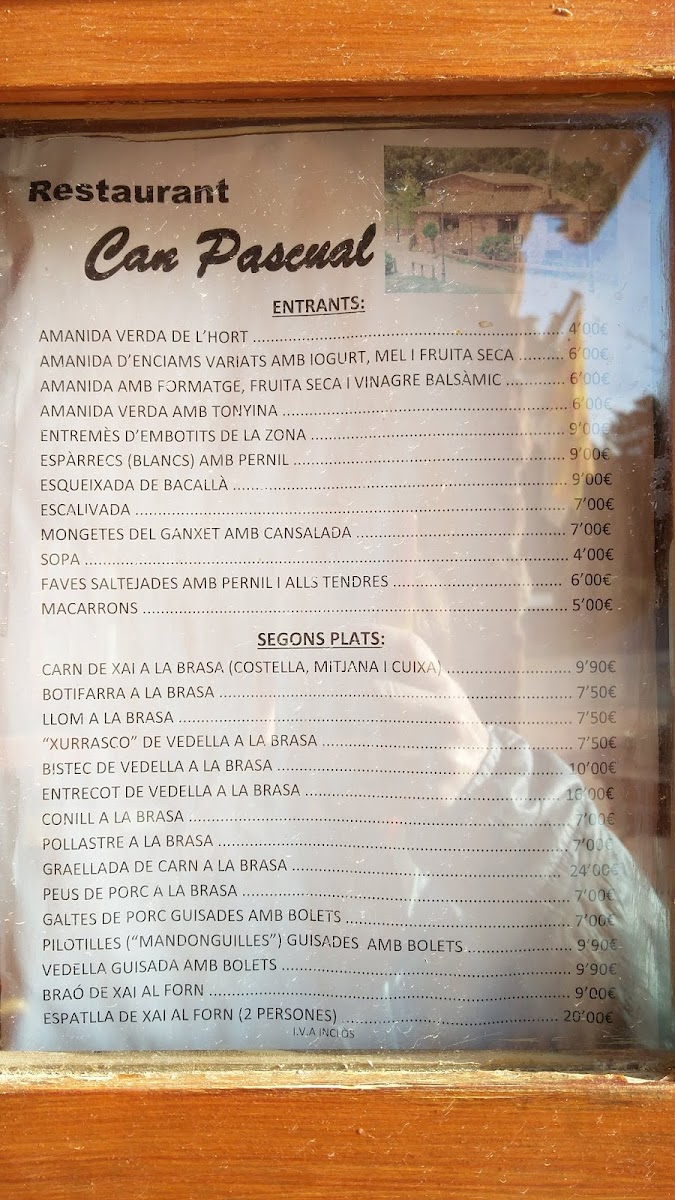 Restaurant
Can Pascual
ENTRANTS:
AMANIDA VERDA DE L'HORT ........ 4'00€
AMANIDA D'ENCIAMS VARIATS AMB IOGURT, MEL I FRUITA SECA ........ 6'00€
AMANIDA AMB FORMATGE, FRUITA SECA I VINAGRE BALSÀMIC ........ 6'00€
AMANIDA VERDA AMB TONYINA ........ 6'00€
ENTREMÈS D'EMBOTITS DE LA ZONA ........ 9'00€
ESPÀRRECS (BLANCS) AMB PERNIL ........ 9'00€
ESQUEIXADA DE BACALLÀ ........ 9'00€
ESCALIVADA ........ 7'00€
MONGETES DEL GANXET AMB CANSALADA ........ 7'00€
SOPA ........ 4'00€
FAVES SALTEJADES AMB PERNIL I ALLS TENDRES ........ 6'00€
MACARRONS ........ 5'00€
SEGONS PLATS:
CARN DE XAI A LA BRASA (COSTELLA, MITJANA I CUIXA) ........ 9'90€
BOTIFARRA A LA BRASA ........ 7'50€
LLOM A LA BRASA ........ 7'50€
"XURRASCO" DE VEDELLA A LA BRASA ........ 7'50€
BISTEC DE VEDELLA A LA BRASA ........ 10'00€
ENTRECOT DE VEDELLA A LA BRASA ........ 16'00€
CONILL A LA BRASA ........ 7'00€
POLLASTRE A LA BRASA ........ 7'00€
GRAELLADA DE CARN A LA BRASA ........ 24'00€
PEUS DE PORC A LA BRASA ........ 7'00€
GALTES DE PORC GUISADES AMB BOLETS ........ 7'00€
PILOTILLES ("MANDONGUILLES") GUISADES AMB BOLETS ........ 9'90€
VEDELLA GUISADA AMB BOLETS ........ 9'90€
BRAÓ DE XAI AL FORN ........ 9'00€
ESPATLLA DE XAI AL FORN (2 PERSONES) ........ 20'00€
I.V.A INCLÒS